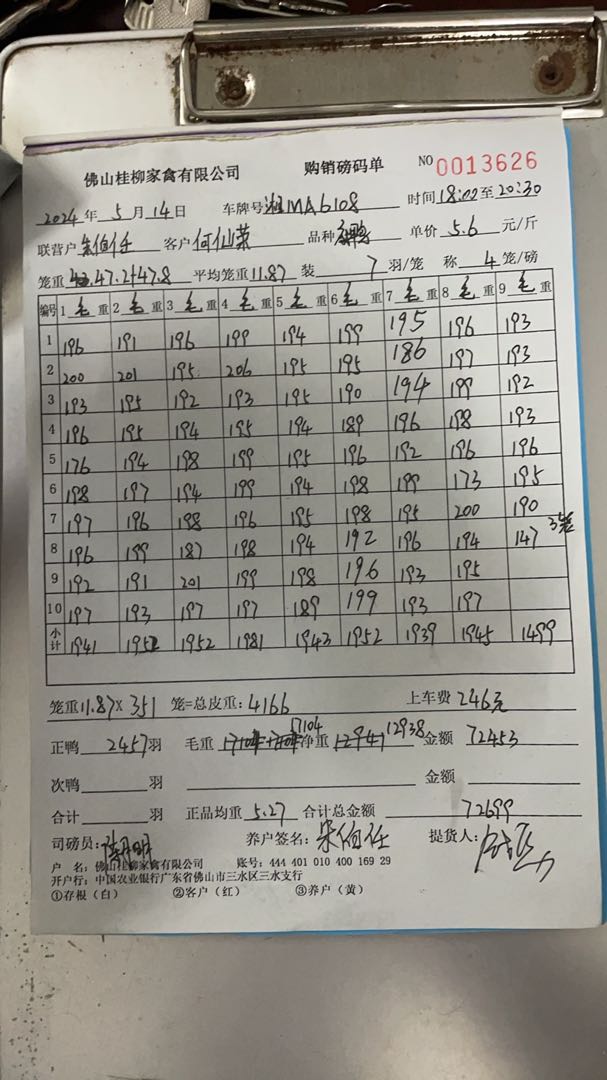 佛山桂柳家禽有限公司 购销磅码单 NO 0013626
2024年 5月 14日 车牌号 湘MA6108 时间 18:00至 20:30
联营户 朱伯任 客户 何仙荣 品种 单价 5.6 元/斤
笼重 47.2+47.8 平均笼重 11.87 装 7 羽/笼 称 4 笼/磅
编号 1 毛 重 2 毛 重 3 毛 重 4 毛 重 5 毛 重 6 毛 重 7 毛 重 8 毛 重 9 毛 重
1 196 191 196 199 194 199 195 196 193
2 200 201 195 206 195 195 186 197 193
3 193 195 192 193 195 190 194 199 192
4 196 195 194 195 194 189 196 198 193
5 176 194 198 199 195 196 192 196 196
6 198 197 194 199 194 198 199 173 195
7 197 196 198 196 195 198 195 200 190
8 196 199 187 198 194 192 196 194 147 3笼
9 192 191 201 199 198 196 193 195
10 197 193 197 197 189 199 193 197
小计 1941 1952 1952 1981 1943 1952 1939 1945 1499
笼重 11.87× 351 笼=总皮重: 4166 上车费 246元
正鸭 2457 羽 毛重 17104 净重 12938 金额 72453
次鸭 羽 金额
合计 羽 正品均重 5.27 合计总金额 72699
司磅员: 养户签名: 朱伯任 提货人:
户 名: 佛山桂柳家禽有限公司 账号: 444 401 010 400 169 29
开户行: 中国农业银行广东省佛山市三水区三水支行
①存根（白） ②客户（红） ③养户（黄）